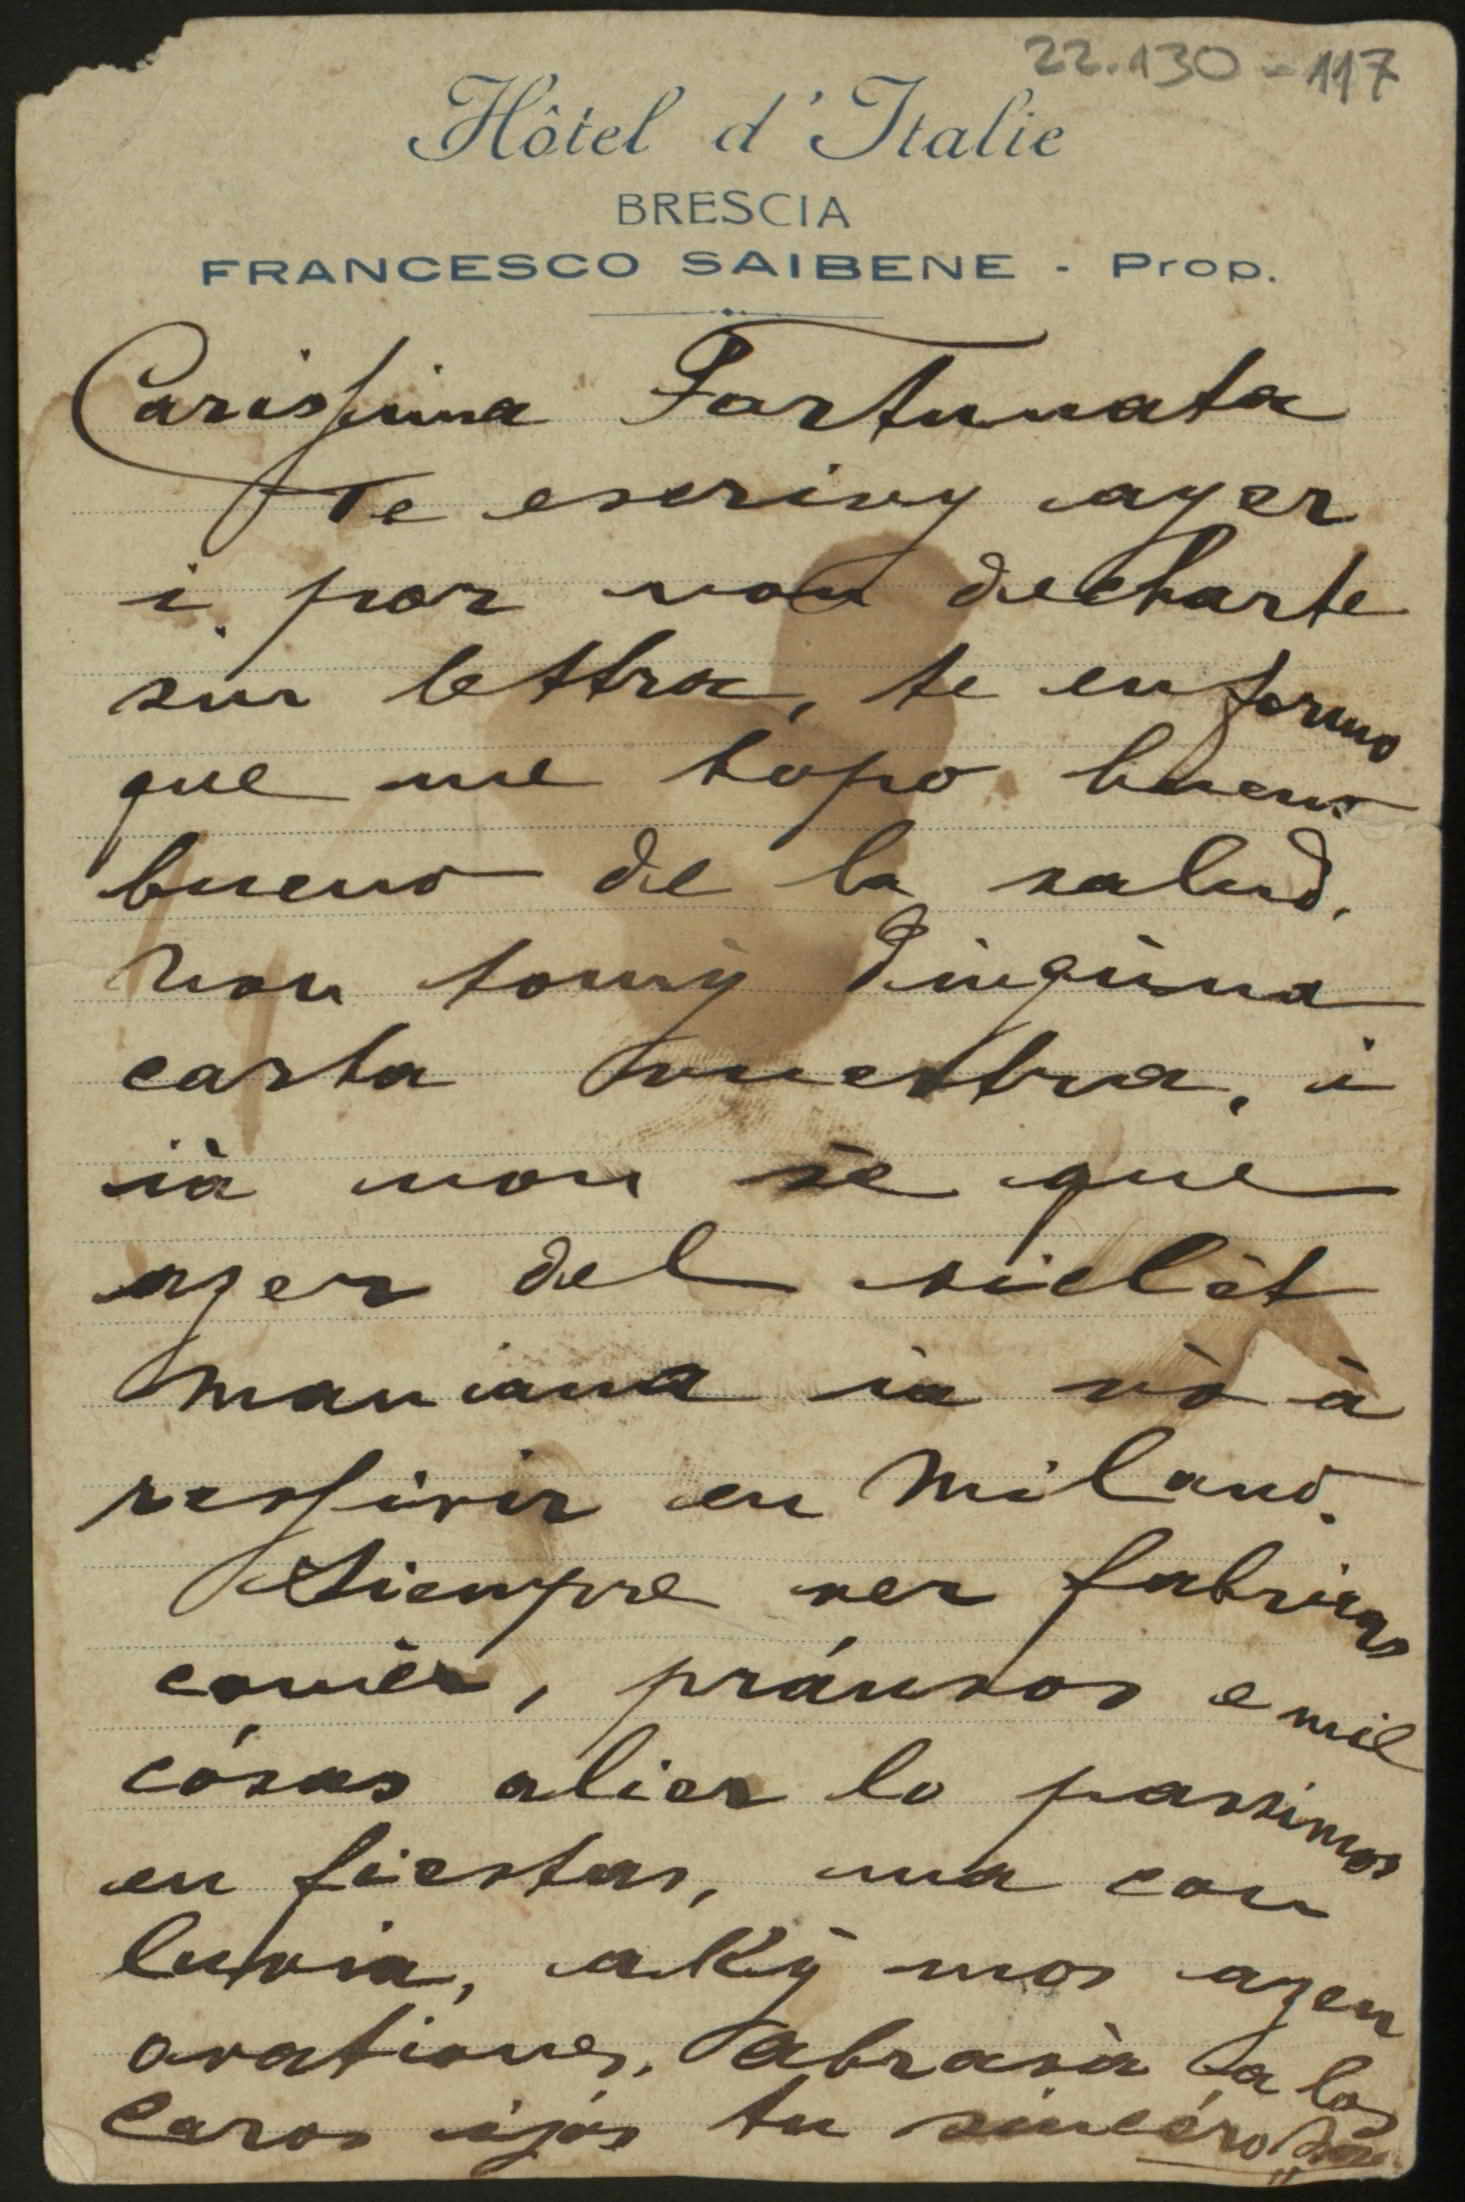 22.130-117
Hôtel d'Italie
BRESCIA
FRANCESCO SAIBENE - Prop.
Carissima Fortunata
Te escrivy ayer
i por non decharte
sin lettra, te enformo
que me topo bueno
bueno de la salud.
Non tomy dingùna
carta vuestra, i
ià non sè que
azer del siclèt
Maniana ià vò à
ressivir en Milano.
Siempre ver fabricas
comèr, pránsos e mil
cósas alier lo passimos
en fiestas, ma con
luvia, akÿ mos azen
orationes. Abrasà a los
caros ijós tu sincéro